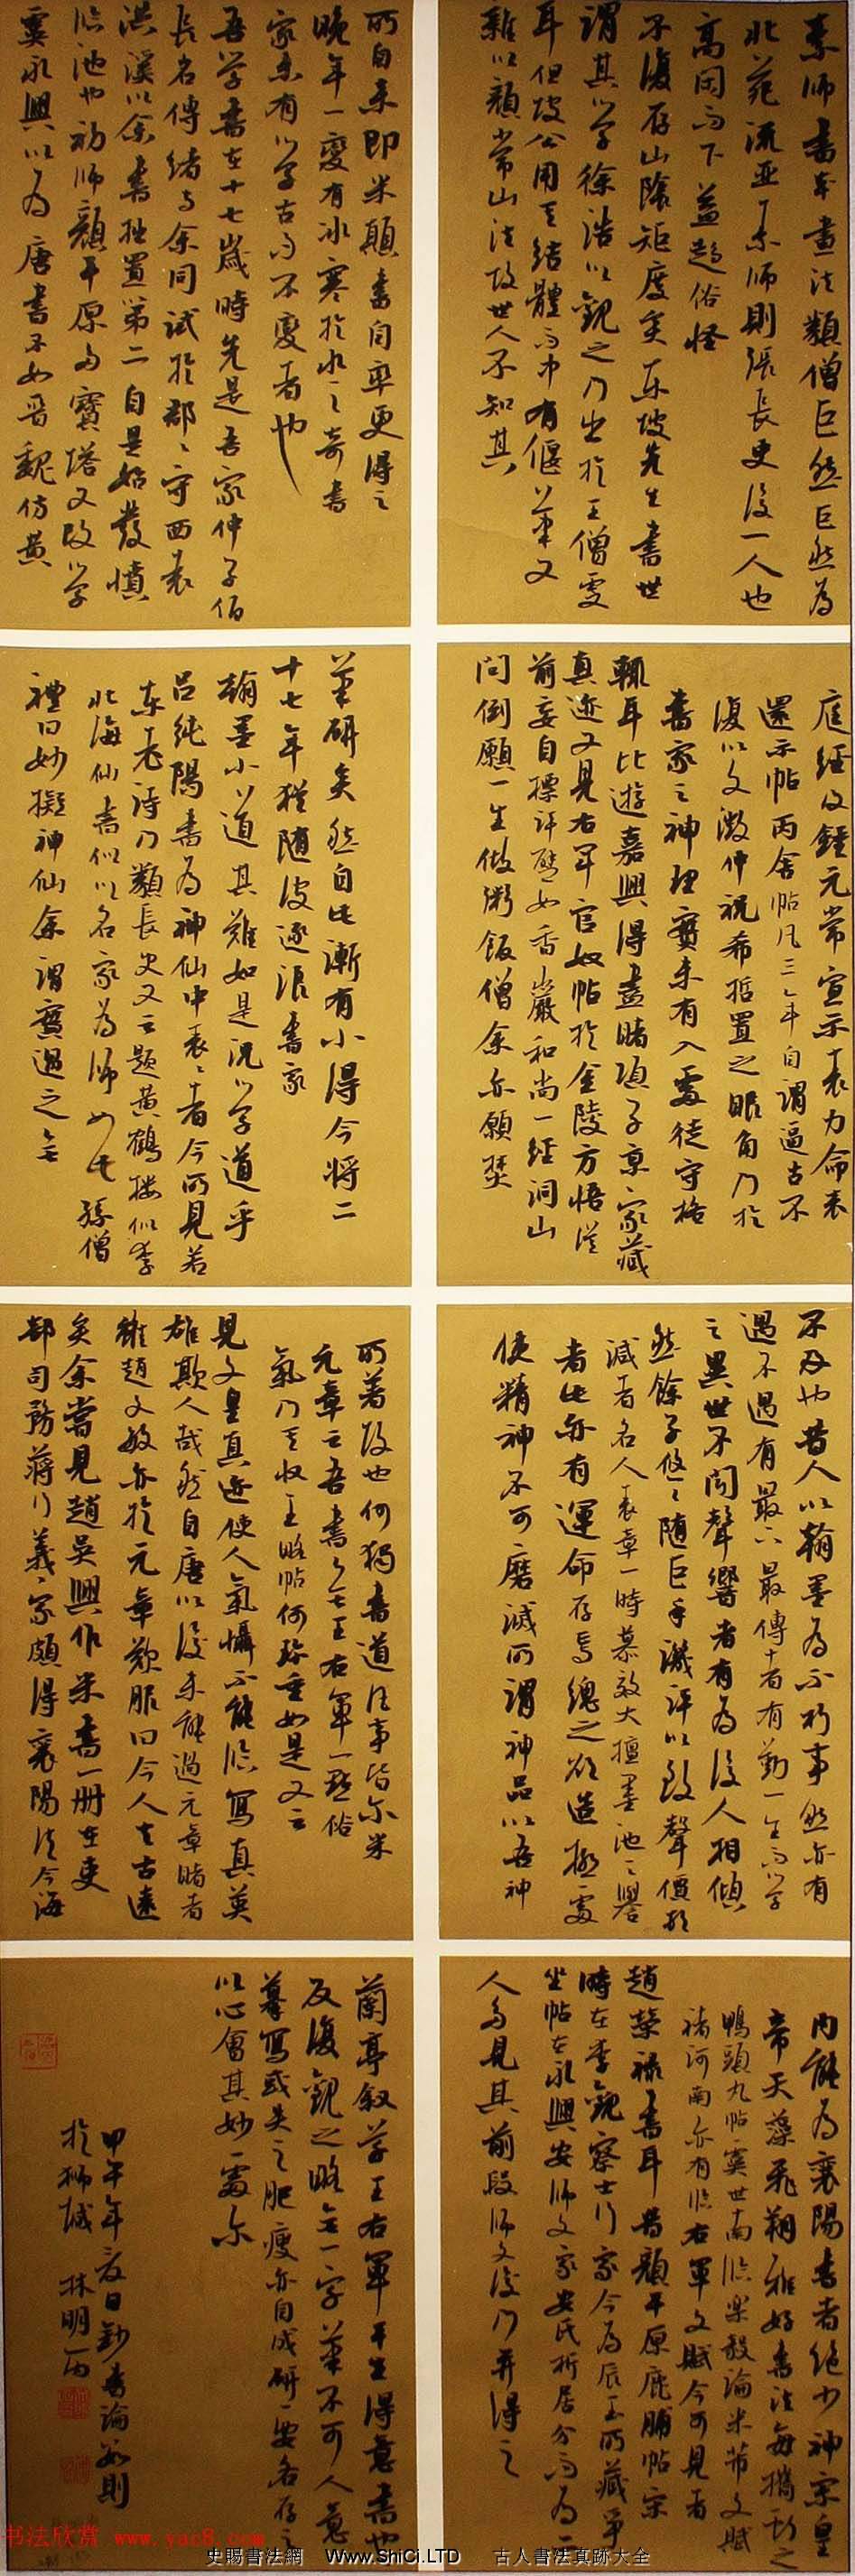 素師書本畫法類僧巨然巨然為
北苑流亞素師則張長史後一人也
高閑而下益趨俗怪
不復存山陰矩度矣東坡先生書世
謂其學徐浩以觀之乃出於王僧虔
耳但坡公用其結體而中有偃筆又
雜以顏常山法故世人不知其
所自來即米顛書自率更得之
晚年一變有冰寒於水之奇書
家未有學古而不變者也
吾學書在十七歲時先是吾家仲子伯
長名傳緒與余同試於郡郡守西表
洪溪以余書拙置第二自是始發憤
臨池也初師顏平原多寶塔又改學
虞永興以為唐書不如晉魏仿黃
庭經及鍾元常宣示表力命表
還示帖丙舍帖凡三年自謂逼古不
復以文徵仲祝希哲置之眼角乃於
書家之神理實未有入處徒守格
轍耳比遊嘉興得盡睹項子京家藏
真迹又見右軍官奴帖於金陵方悟從
前妄自標評譬如香嚴和尚一經洞山
問倒願一生做粥飯僧余亦願焚
筆研矣然自此漸有小得今將二
十七年猶隨波逐浪書家
翰墨小道其難如是況學道乎
呂純陽書為神仙中表表者今所見若
東老詩乃類張長史又云題黃鶴樓似李
北海仙書似以名家為師如此孫僧
禮曰妙擬神仙余謂實過之無
不及也昔人以翰墨為不朽事然亦有
遇不遇有最下最傳者有勤一生而學
之異世不聞聲響者有為後人相傾
然餘子悠悠隨巨手譏評以致聲價頓
減者名人表章一時慕效大擅墨池之譽
者此亦有運命存焉總之欲造極處
使精神不可磨滅所謂神品以吾神
所著故也何獨書道凡事皆爾米
元章云吾書無王右軍一點俗
氣乃其收王略帖何珍重如是又云
見文皇真迹使人氣懾不能臨寫真英
雄欺人哉然自唐以後未能過元章睹者
雖趙文敏亦於元章歎服曰今人去古遠
矣余嘗見趙吳興作米書一冊在吏
部司務蔣行義家頗得襄陽法今海
內能為襄陽書者絕少神宗皇
帝天藻飛翔雅好書法每攜行之
鴨頭丸帖虞世南臨樂毅論米芾文賦
褚河南亦有臨右軍文賦今可見者
趙榮祿書耳昔顏平原鹿脯帖宋
時在李觀察士行家今為辰玉所藏爭
坐帖在永興安師文家安氏析居分而為二
人多見其前段師文後乃并得之
蘭亭敘學王右軍平生得意書也
反復觀之略無一字筆不可人意
摹寫或失之肥瘦亦自成研要各存之
以心會其妙處爾
甲午年夏日鈔書論數則
於獅城 林明
书法欣赏 www.yac8.com
史賜書法網 www.ShiCi.LTD 古人書法真跡大全